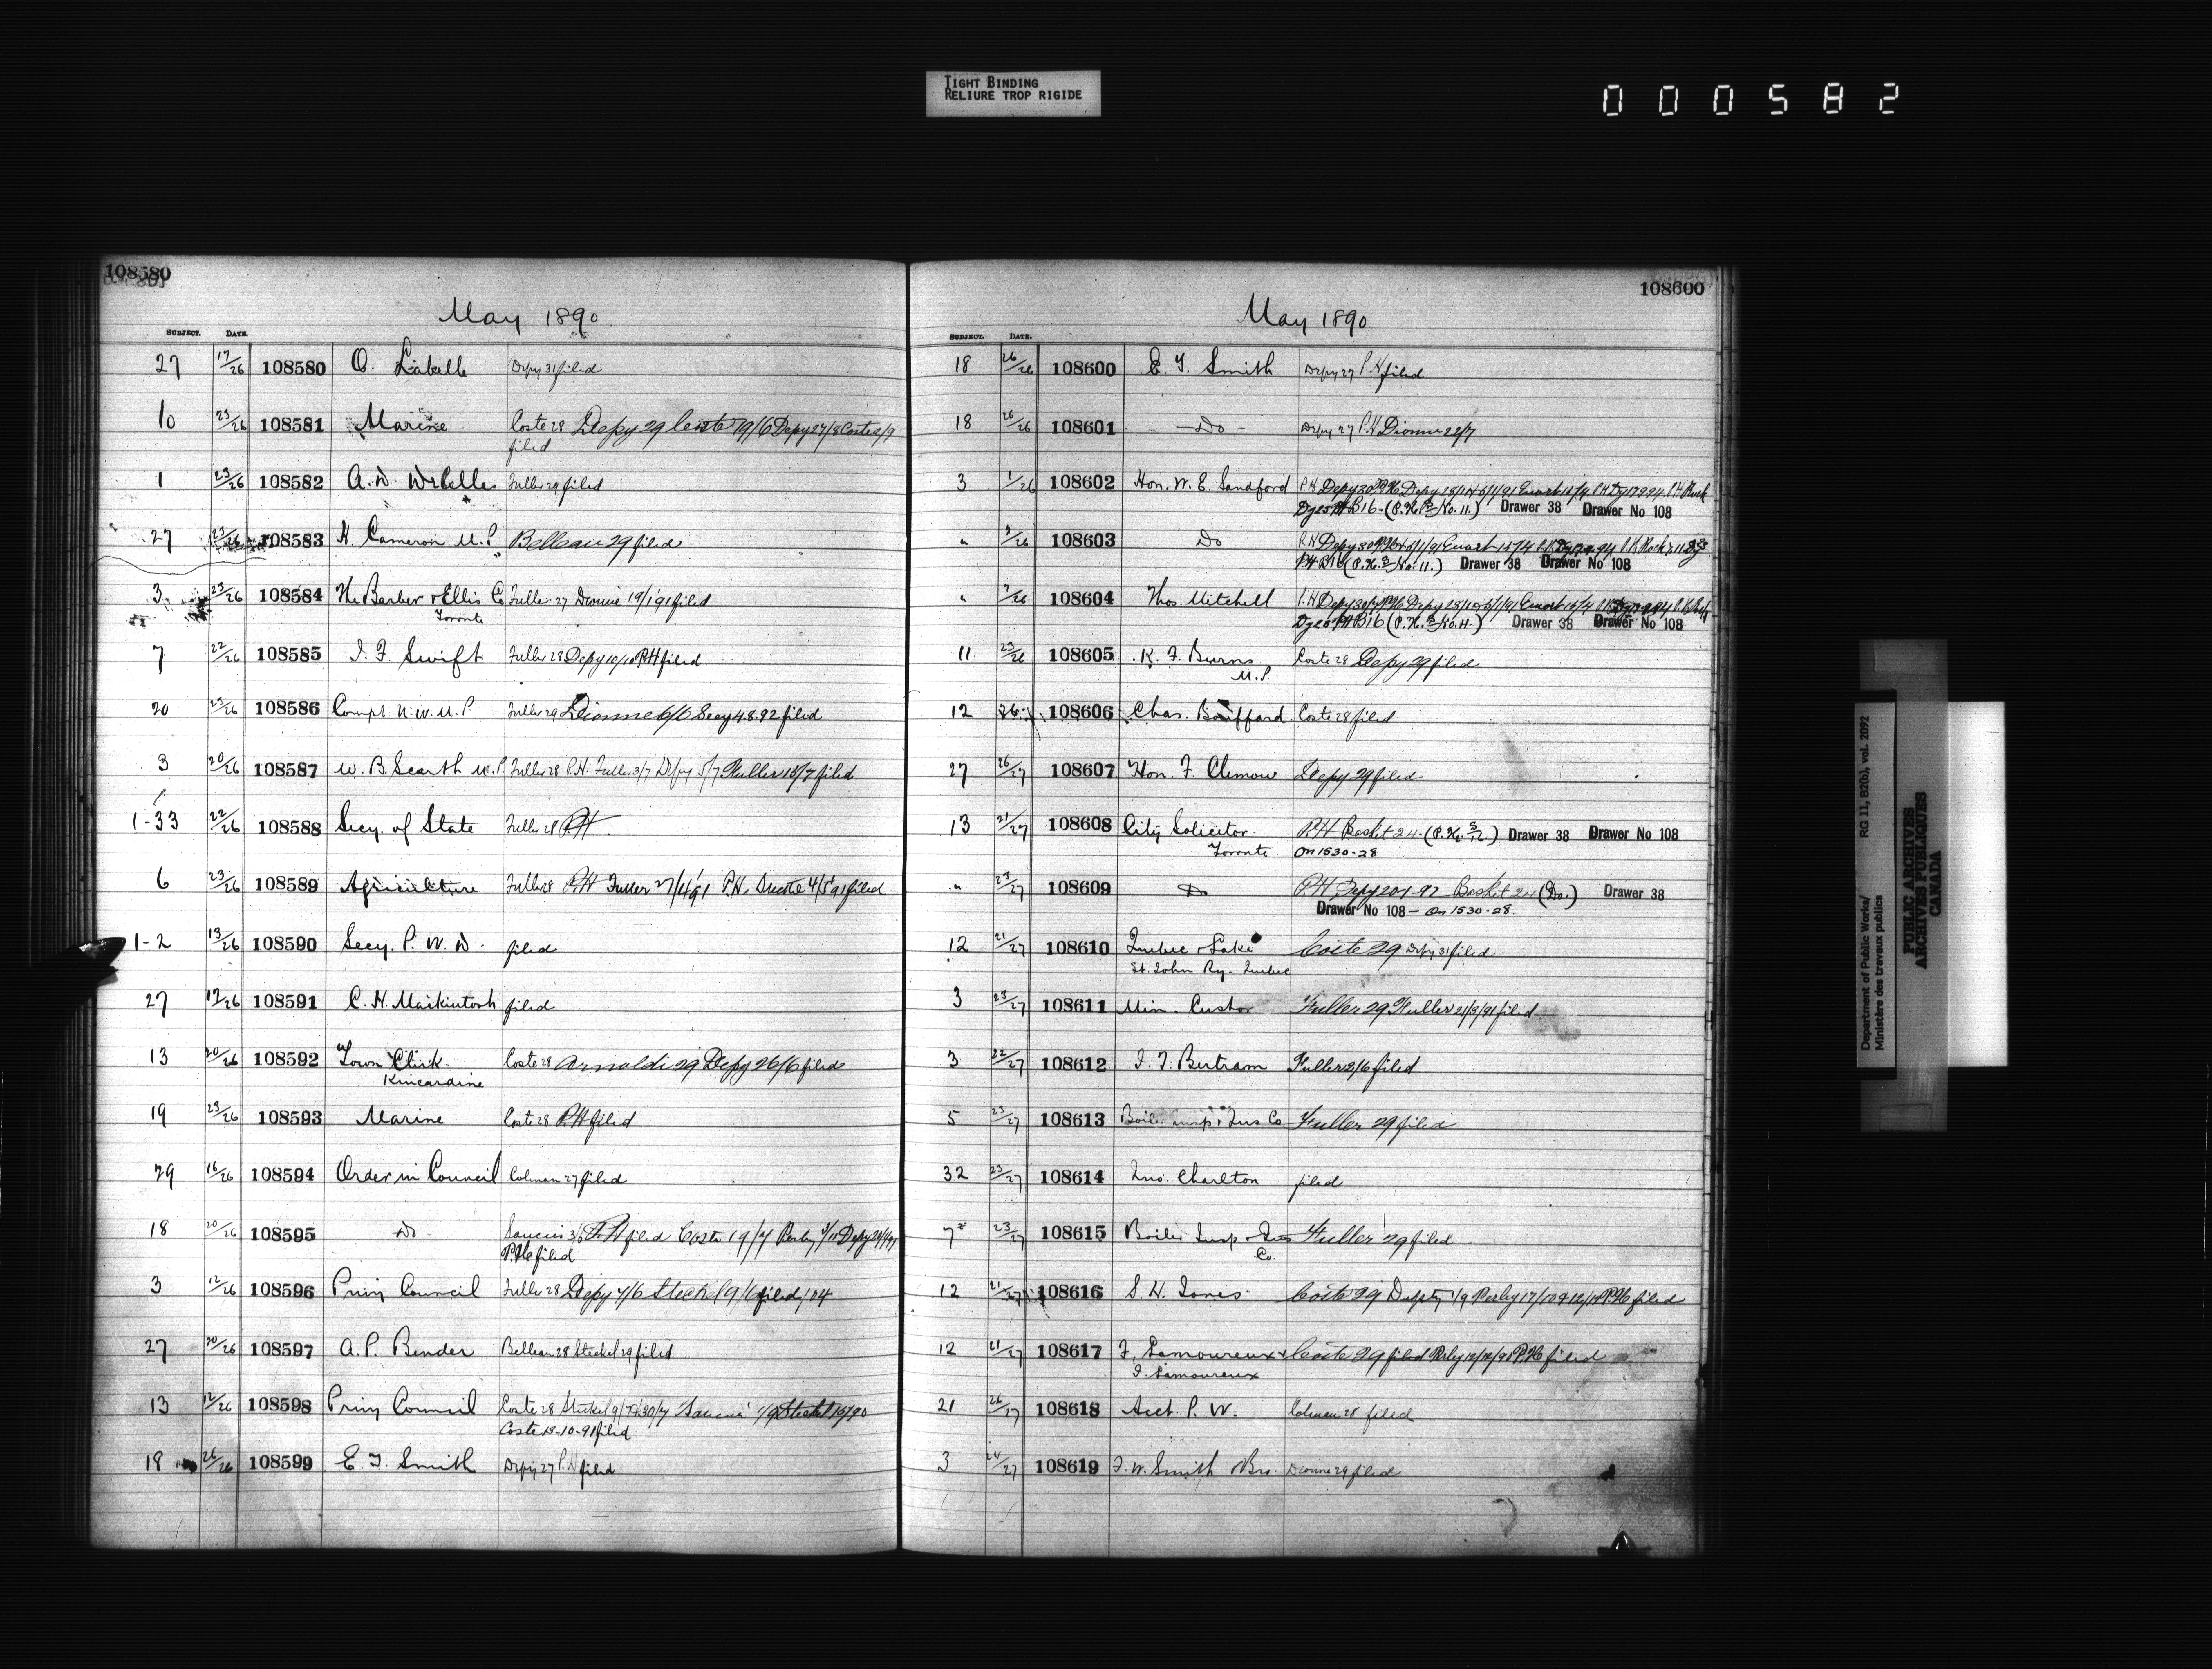 TIGHT BINDING
RELIURE TROP RIGIDE
000582
108580
May 1890
SUBJECT. DATE.
27 17/26 108580 O. Labelle Depy 31 filed
10 23/26 108581 Marine Coste 28 Depy 29 Coste 19/6 Depy 27/8 Coste 2/9
filed
1 23/26 108582 A. D. Fuller 29 filed
27 23/26 108583 H. Cameron M.P. Belleau 29 filed
3 23/26 108584 The Barber & Ellis Co Fuller 27 Dionne 19/1 91 filed
Toronto
7 22/26 108585 J. F. Swift Fuller 28 Depy 10/10 P.H filed
20 23/26 108586 Compt. N.W.M.P. Fuller 29 Dionne 6/6 Secy 4.8.92 filed
3 20/26 108587 W. B. Scarth M.P. Fuller 28 P.H. Fuller 3/7 Depy 5/7 Fuller 15/7 filed
1-33 22/26 108588 Secy. of State Fuller 28 P.H.
6 23/26 108589 Agriculture Fuller 28 P.H Fuller 27/4/91 P.H. 4/5 91 filed
1-2 13/26 108590 Secy. P. W. D. filed
27 17/26 108591 C. H. Mackintosh filed
13 20/26 108592 Town Clerk. Coste 28 Arnoldi 29 Depy 26/6 filed
Kincardine
19 23/26 108593 Marine Coste 28 P.H filed
29 16/26 108594 Order in Council Colman 27 filed
18 20/26 108595 Do P.H filed Coste 19/7 Perley Depy
P.H filed
3 12/26 108596 Privy Council Fuller 28 Depy 4/6 Steckel 9/6 filed
27 20/26 108597 A. P. Bender Belleau 28 Steckel 29 filed
13 12/26 108598 Privy Council Coste 28 Steckel
Coste 13-10-91 filed
18 26/26 108599 E. T. Smith Depy 27 P.H filed
108600
May 1890
SUBJECT. DATE.
18 26/26 108600 E. T. Smith Depy 27 P.H filed
18 26/26 108601 - Do - Depy 27 P.H Dionne 22/7
3 1/26 108602 Hon. W. E. Sandford P.H Depy 30 P.H Depy Ewart 15/4
B16 - (P.H. No. 11.) Drawer 38 Drawer No 108
" 2/26 108603 Do P.H Depy Ewart 15/4
P.H B16 (P.H. No. 11.) Drawer 38 Drawer No 108
" 2/26 108604 Thos. Mitchell P.H Depy Ewart 15/4
B16 (P.H. No. 11.) Drawer 38 Drawer No 108
11 23/26 108605 K. F. Burns Coste 28 Depy 29 filed
M.P.
12 26 108606 Chas. Bouffard Coste 28 filed
27 26/27 108607 Hon. F. Clemow Depy 29 filed
13 21/27 108608 City Solicitor. P.H Basket 24. (P.H. ) Drawer 38 Drawer No 108
Toronto. On 1530-28
" 23/27 108609 Do P.H Depy Basket 24 (Do.) Drawer 38
Drawer No 108 - On 1530-28.
12 21/27 108610 Quebec & Lake Coste 29 Depy 31 filed
St. John Ry. Quebec
3 23/27 108611 Min. Customs Fuller 29 Fuller 21/3/91 filed
3 22/27 108612 J. T. Bertram Fuller 2/6 filed
5 23/27 108613 Boiler Insp. & Ins Co Fuller 29 filed
32 23/27 108614 Jno. Charlton filed
7 23/27 108615 Boiler Insp & Ins Fuller 29 filed
Co.
12 21/27 108616 S. H. Jones Coste 29 Depty 1/9 Perley 17/10 P.H filed
12 21/27 108617 F. Lamoureux & Coste 29 filed Perley P.H filed
J. Lamoureux
21 26/27 108618 Acct. P. W. Colman 28 filed
3 24/27 108619 J. W. Smith & Bro. Dionne 29 filed
Department of Public Works/ RG 11, B2(b), vol. 2092
Ministère des travaux publics
PUBLIC ARCHIVES
ARCHIVES PUBLIQUES
CANADA